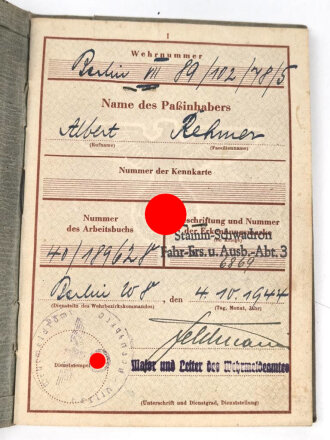 1
Wehrnummer
Berlin VIII 89/102/78/5
Name des Paßinhabers
Albert Rehmer
(Rufname) (Familienname)
Nummer der Kennkarte
Nummer des Arbeitsbuchs
40/189628
Beschriftung und Nummer
der Erkennungsmarke
Stamm-Schwadron
Fahr-Ers. u. Ausb.-Abt. 3
6869
Berlin W8, den 4.10.1944
(Dienstsitz des Wehrbezirkskommandos) (Tag, Monat, Jahr)
Dienststempel
Feldmann
Major und Leiter des Wehrmeldeamtes
(Unterschrift und Dienstgrad, Dienststellung)